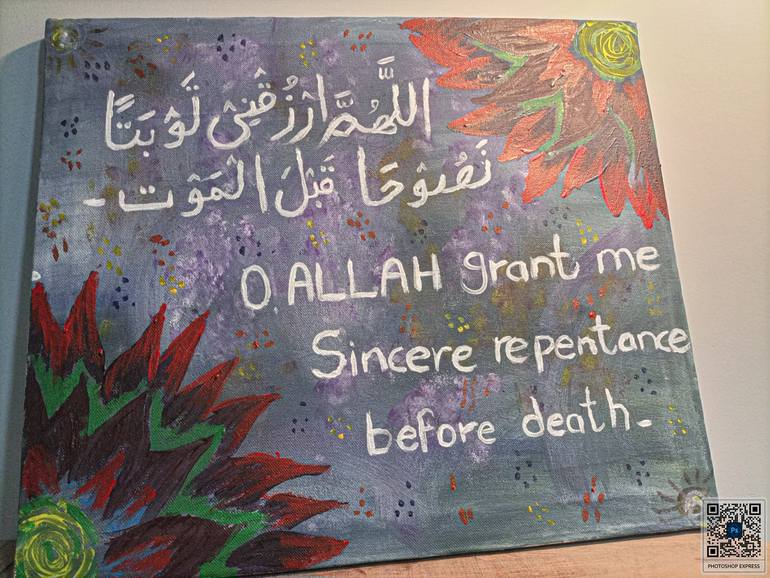 اللَّهُمَّ ارْزُقْنِيْ تَوْبَتًا
نَصُوْحَا قَبْلَ الْمَوْت -
O ALLAH grant me
Sincere repentance
before death -
PHOTOSHOP EXPRESS